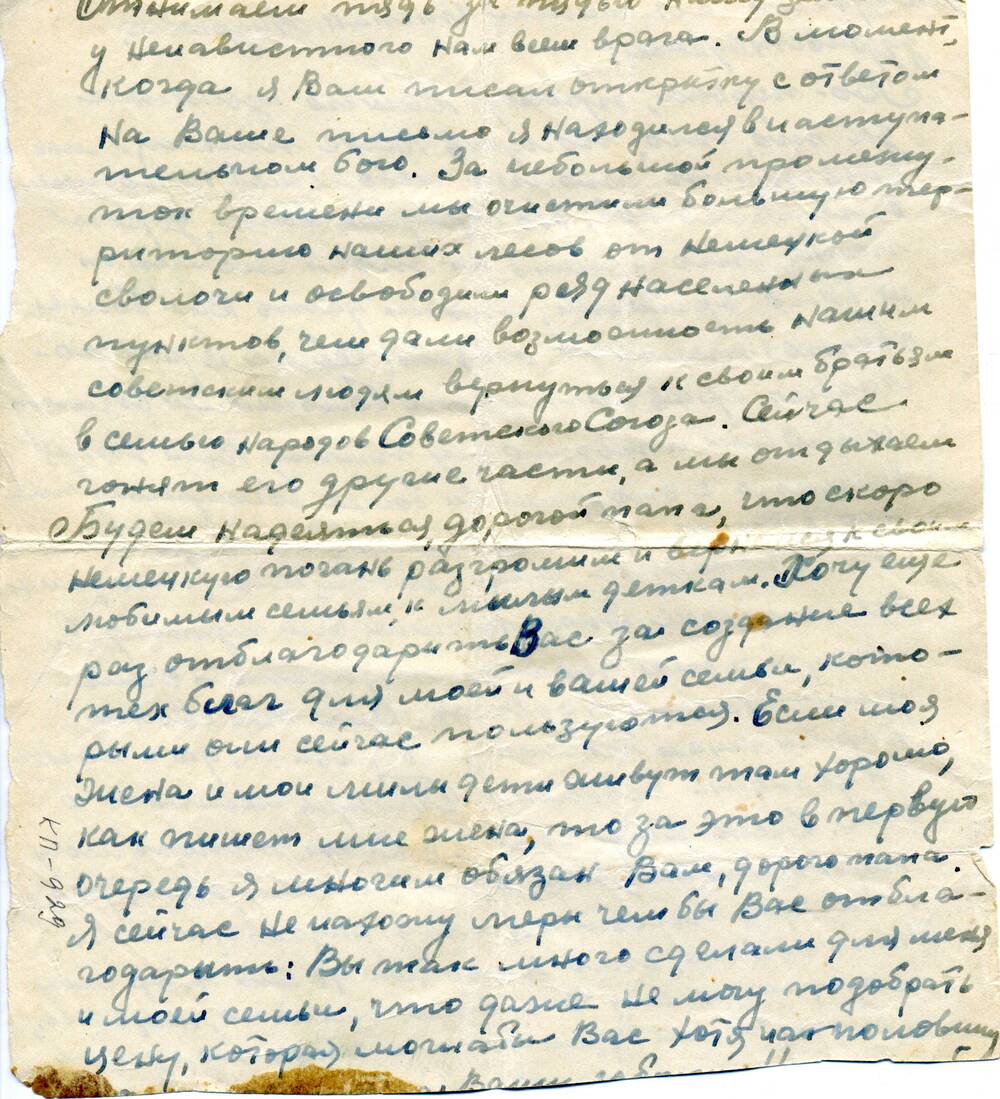 Отнимаем пядь за пядью нашу
у ненавистного нам всем врага. В момент,
когда я Вам писал открытку с ответом
на Ваше письмо я находился в наступа-
тельном бою. За небольшой промежу-
ток времени мы очистили большую тер-
риторию наших лесов от немецкой
сволочи и освободили ряд населенных
пунктов, чем дали возможность нашим
советским людям вернуться к своим братьям
в семью народов Советского Союза. Сейчас
гонят его другие части, а мы отдыхаем
Будем надеяться, дорогой папа, что скоро
немецкую погань разгромим и вернемся к своим
любимым семьям, к милым деткам. Хочу еще
раз отблагодарить Вас за создание всех
тех благ для моей и вашей семьи, кото-
рыми они сейчас пользуются. Если моя
жена и мои милы дети живут там хорошо,
как пишет мне жена, то за это в первую
очередь я многим обязан Вам, дорого папа.
Я сейчас не нахожу меры чем бы Вас отбла-
годарыть: Вы так много сделали для меня
и моей семьи, что даже не могу подобрать
цену, которая моглабы Вас хотя на половину
КП-929